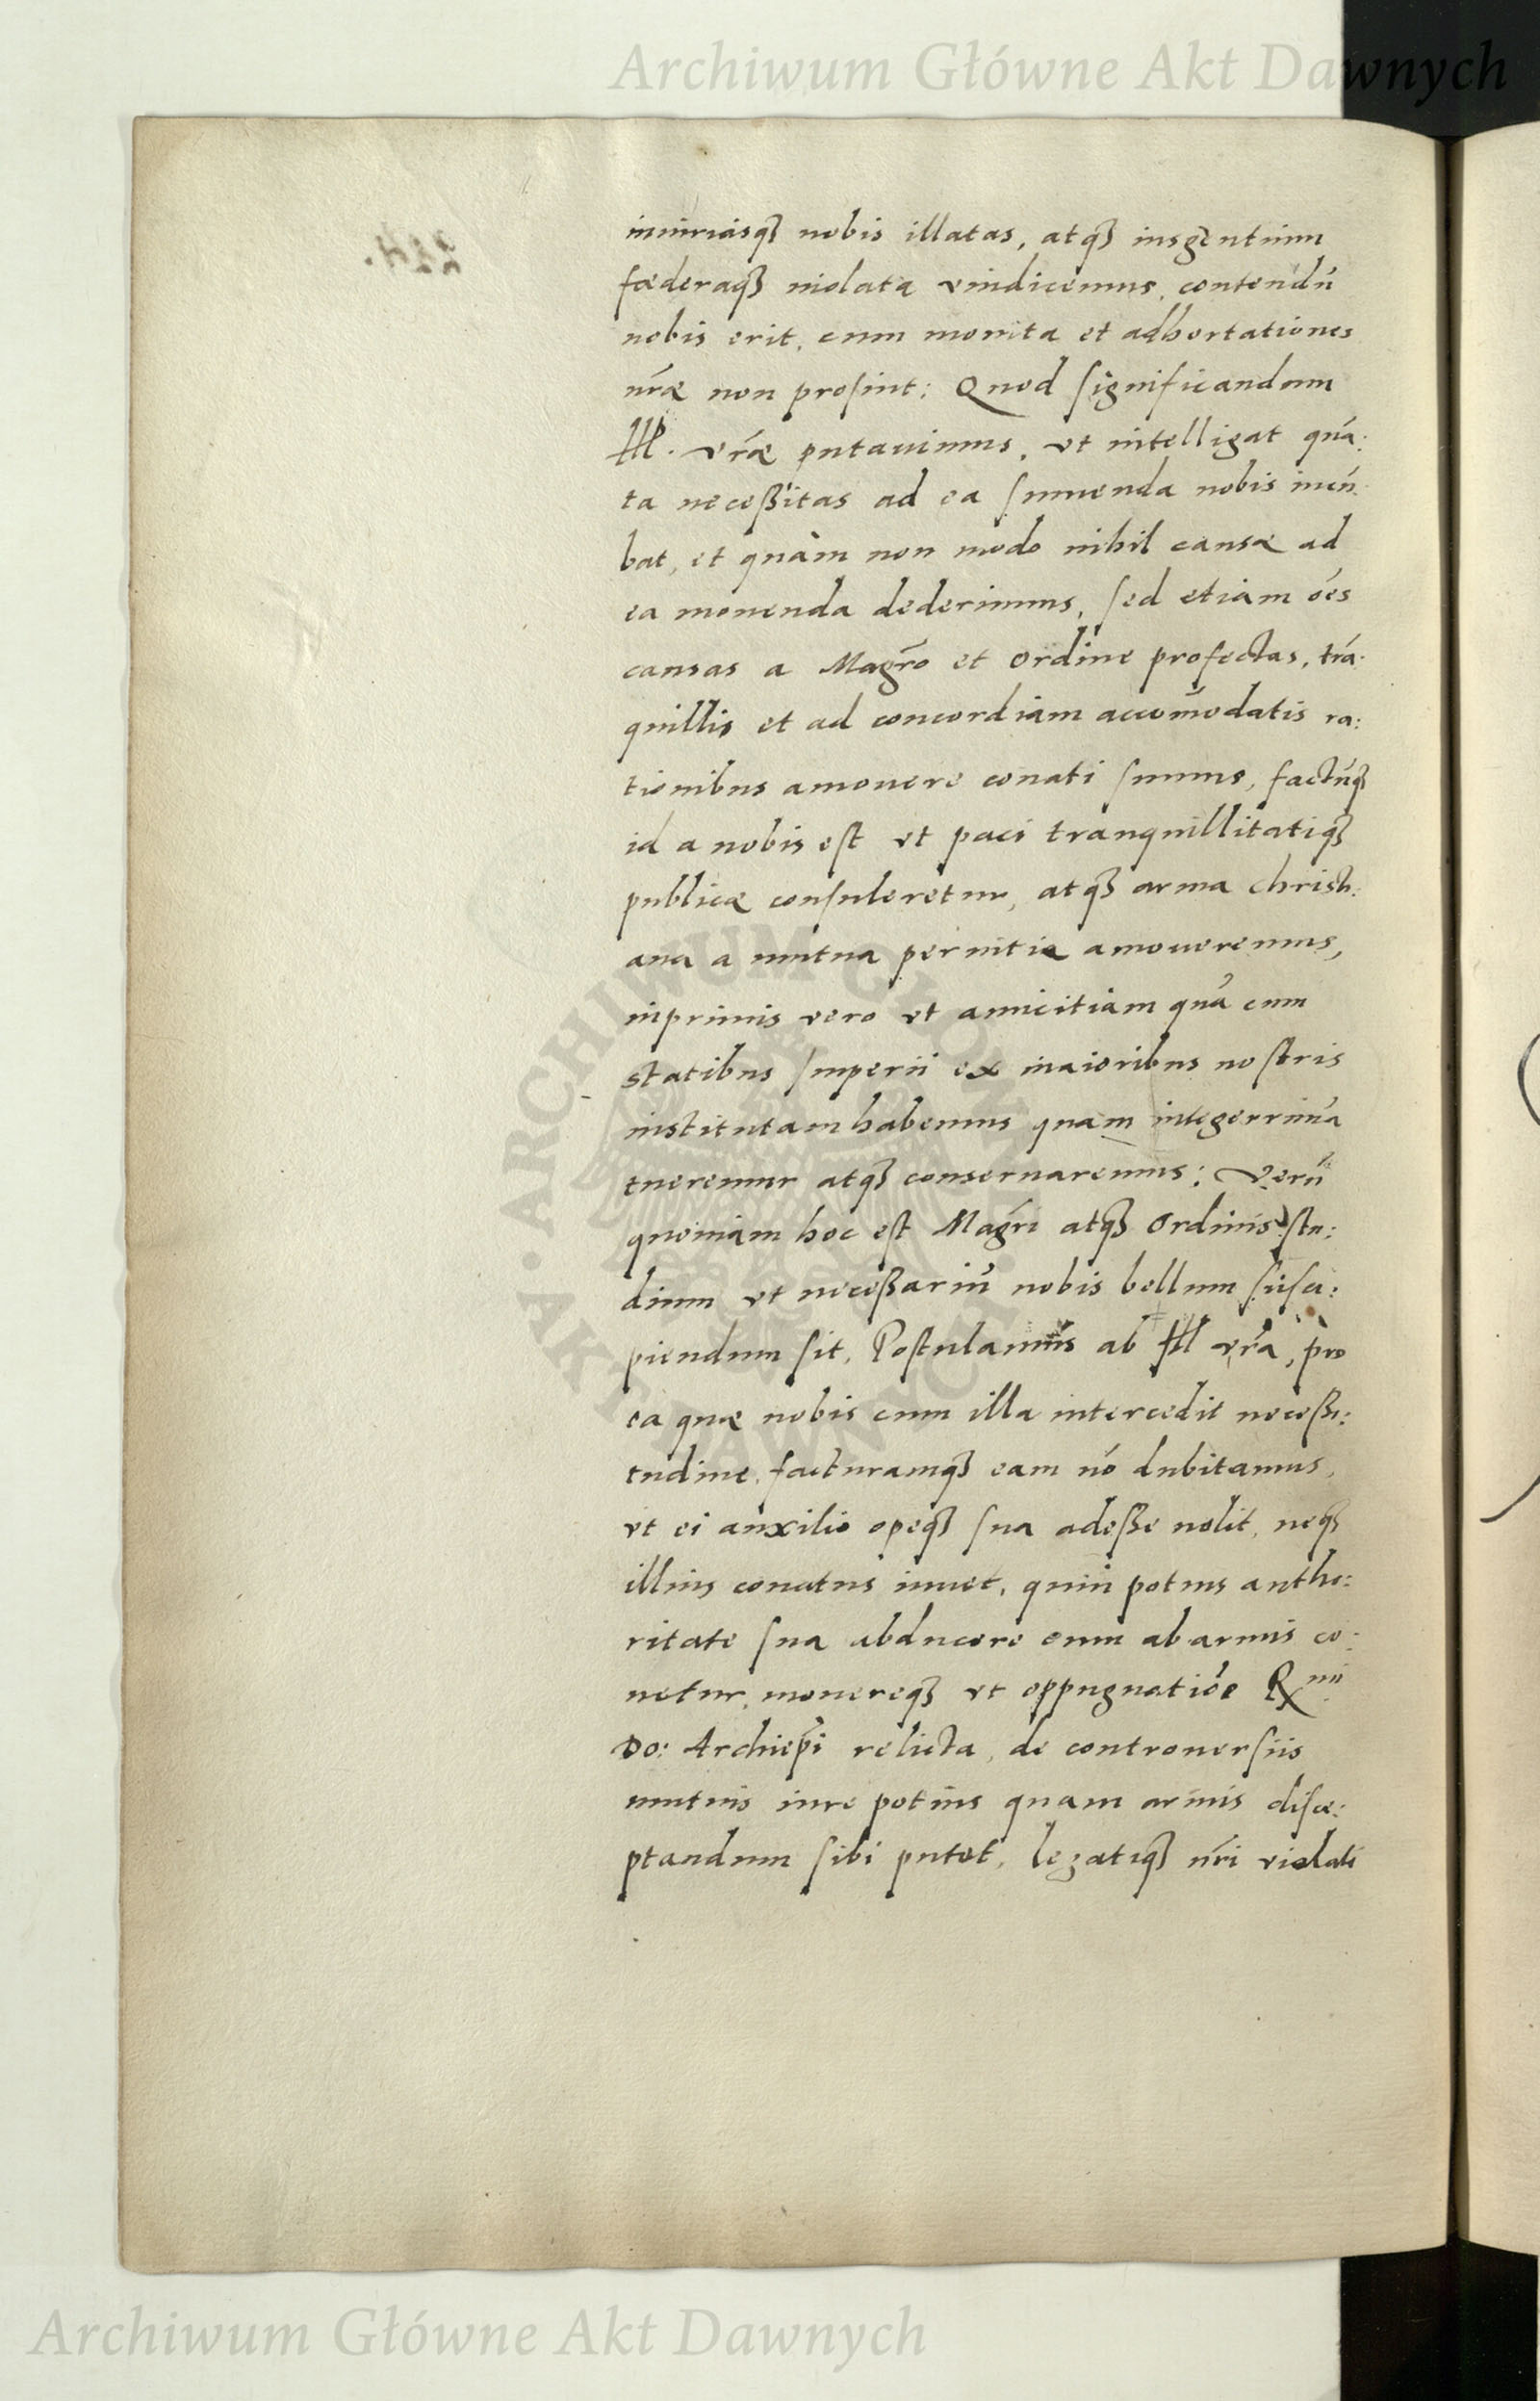 Archiwum Główne Akt Dawnych
iniuriasq₃ nobis illatas, atq₃ ius gentium
fœderaq₃ uiolata vindicemus, contendū
nobis erit, cum monita et adhortationes
nr̄æ non prosint: Quod significandum
Ill. vr̄æ putauimus, vt intelligat quā:
ta neceßitas ad ea sumenda nobis incū:
bat, et quàm non modo nihil causæ ad
ea mouenda dederimus, sed etiam oēs
causas a Magr̄o et Ordine profectas, trā:
quillis et ad concordiam accom̄odatis ra:
tionibus amouere conati sumus, factūq₃
id a nobis est vt paci tranquillitatiq₃
publicæ consuleretur, atq₃ arma christi:
ana a mutua pernitie amoueremus,
inprimis vero vt amicitiam quā cum
statibus Imperii ex maioribus nostris
institutam habemus quam integerrimā
tueremur atq₃ conseruaremus: Verū
quoniam hoc est Magr̄i atq₃ Ordinis stu:
dium vt neceßariū nobis bellum susci:
piendum sit, Postulamus ab Ill vr̄a, pro
ea quæ nobis cum illa intercedit neceßi:
tudine, facturamq₃ eam nō dubitamus,
vt ei auxilio opeq₃ sua adeße nolit, neq₃
illius conatus iuuet, quin potius autho:
ritate sua abducere eum ab armis co:
netur, monereq₃ vt oppugnatiōe Rmi
Do: Archiepī relicta, de controuersiis
mutuis iure potius quam armis disce:
ptandum sibi putet, legatiq₃ nr̄i violati
ARCHIWUM GŁÓWNE · AKT DAWNYCH ·
Archiwum Główne Akt Dawnych